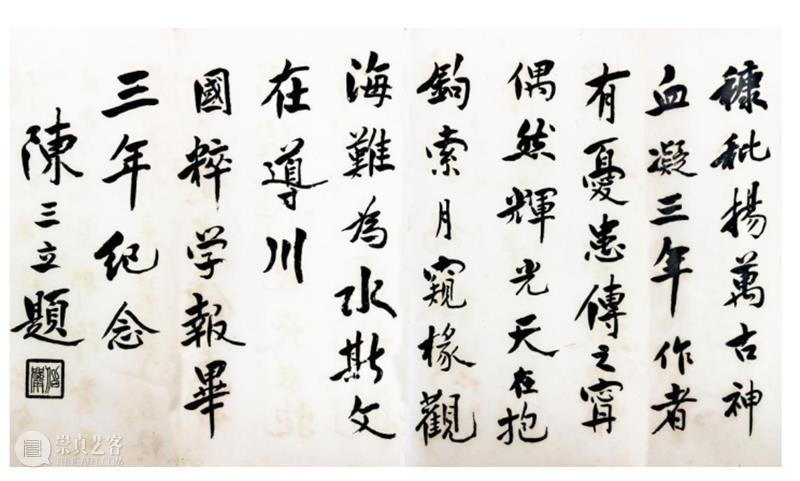 糠秕揚萬古神
血凝三年作者
有憂患傳之甯
偶然輝光天在抱
鉤索月窺椽觀
海難為水斯文
在導川
國粹学報畢
三年紀念
陳三立題
崇真艺客